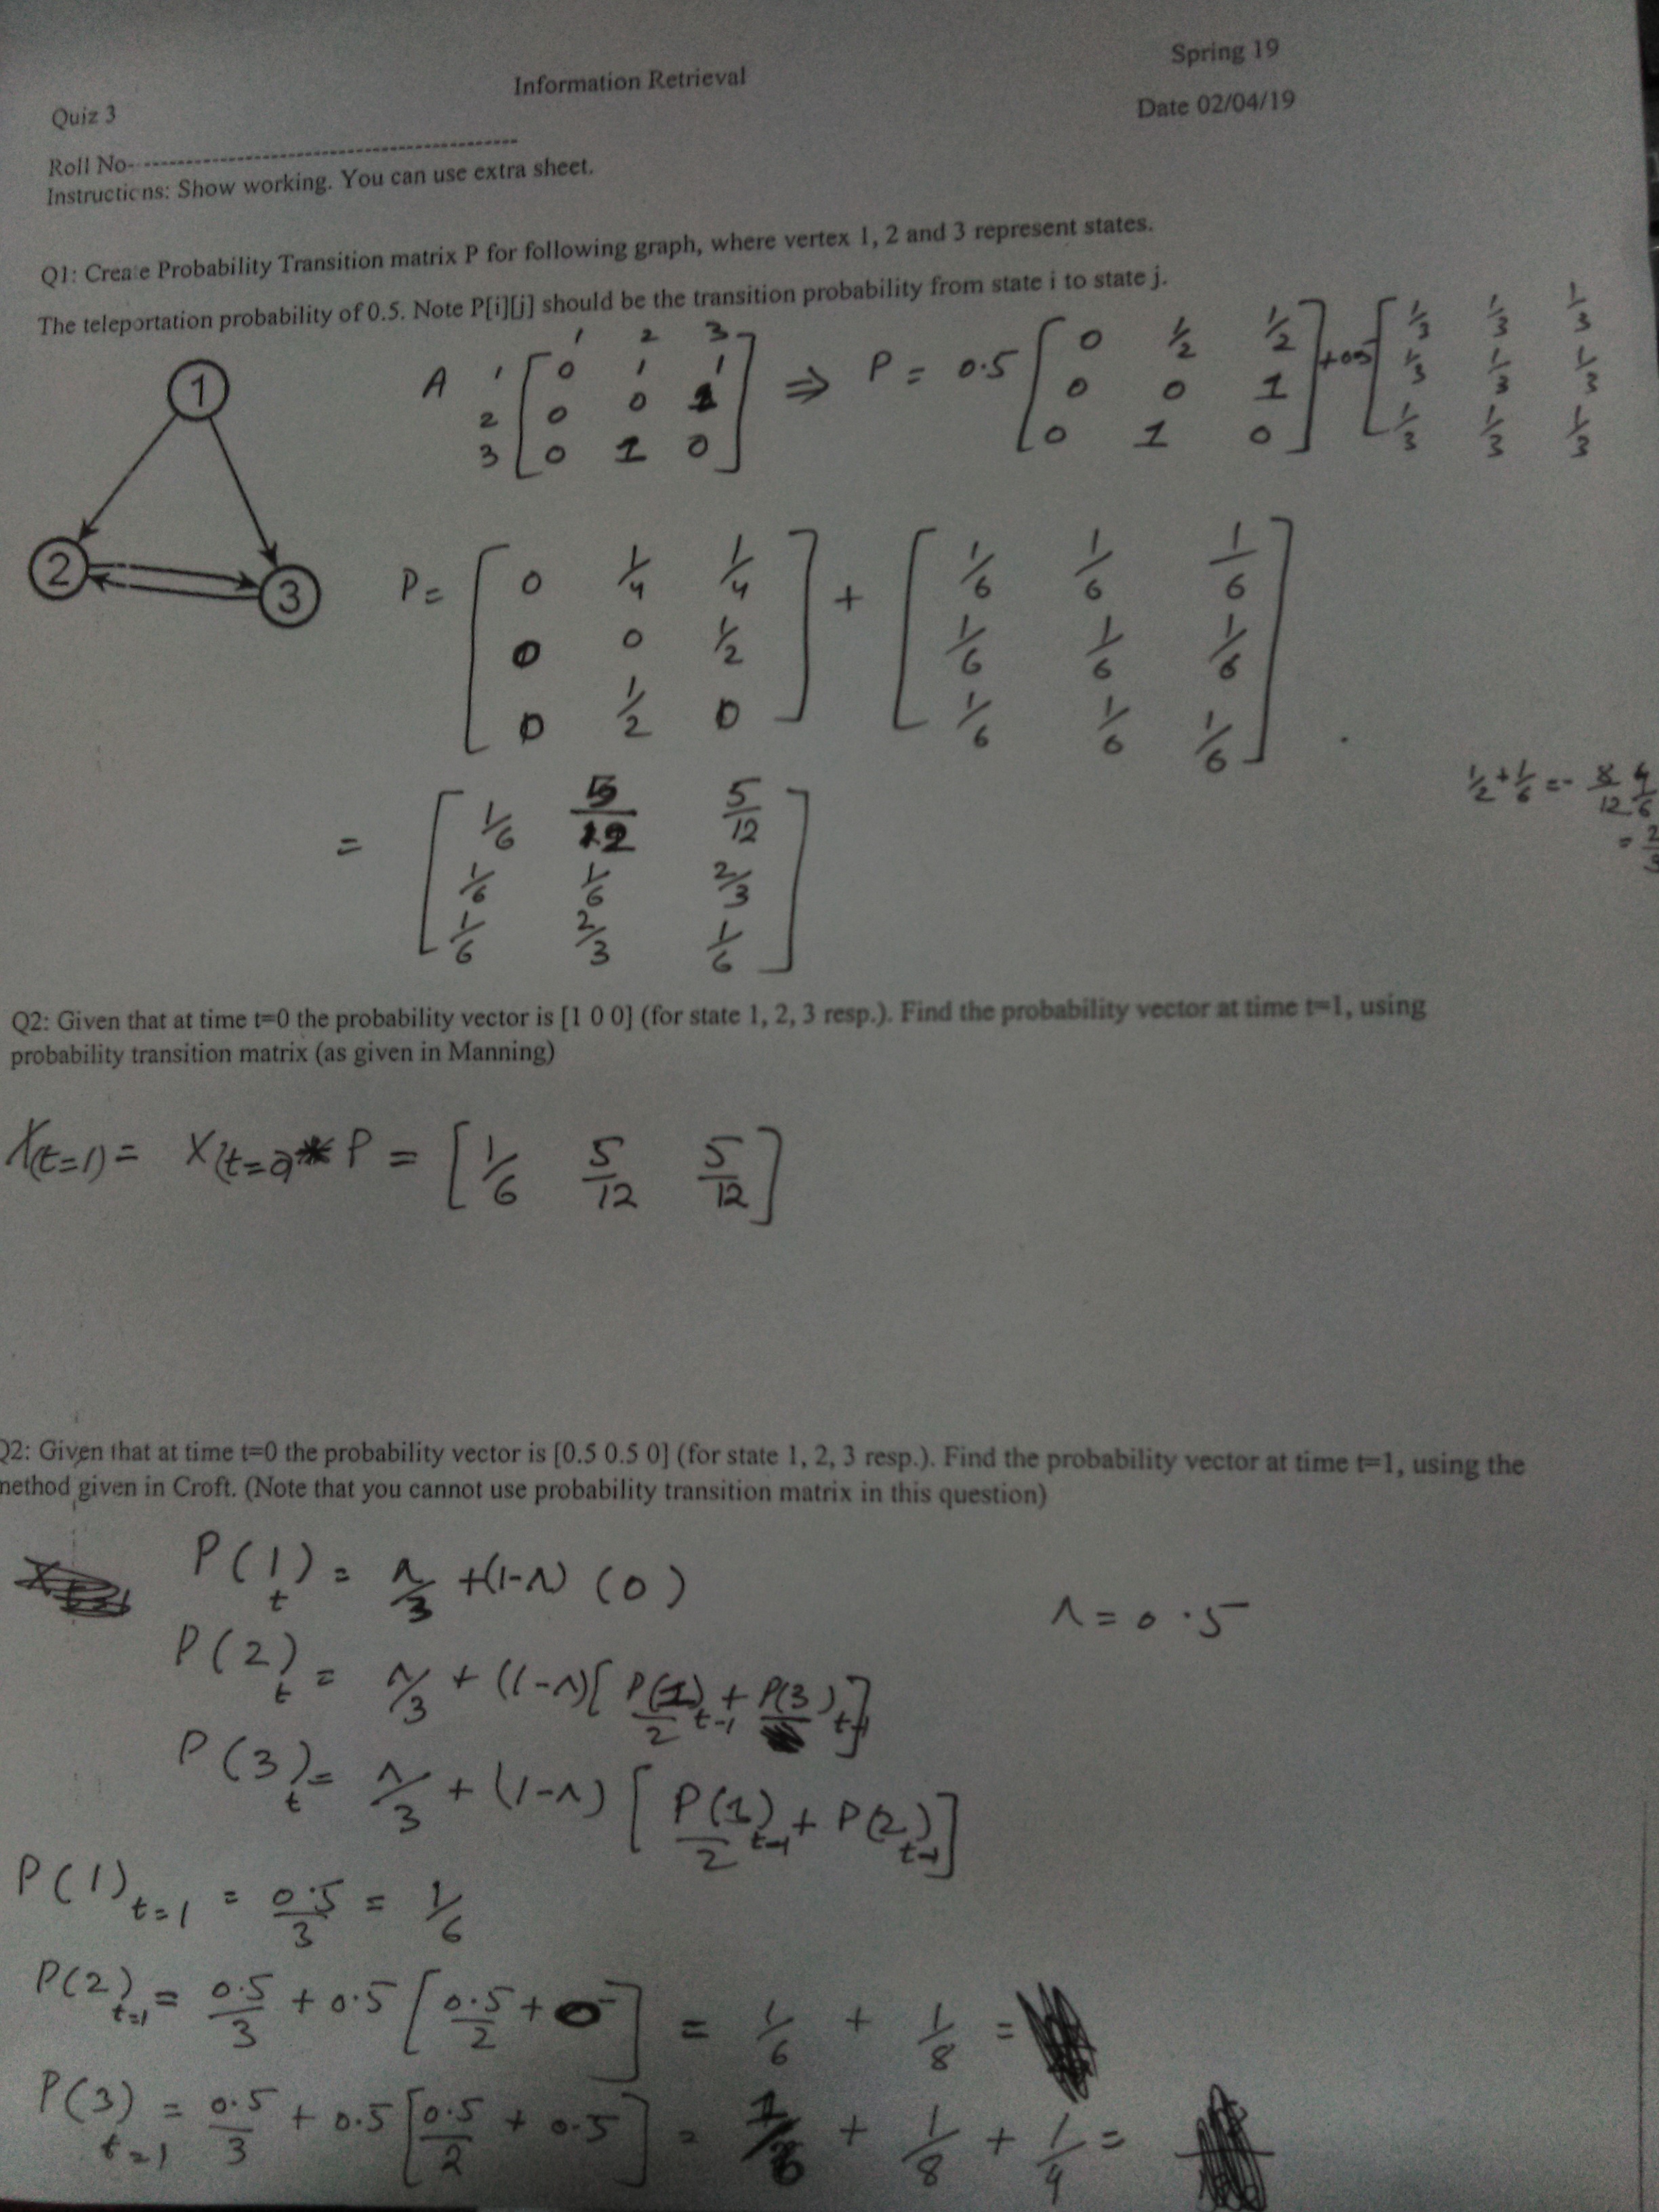 Information Retrieval
Spring 19
Quiz 3
Date 02/04/19
Roll No-
Instructions: Show working. You can use extra sheet.
Q1: Create Probability Transition matrix P for following graph, where vertex 1, 2 and 3 represent states.
The teleportation probability of 0.5. Note P[i][j] should be the transition probability from state i to state j.
1
2
3
1 2 3
A 1 [ 0 1 1 ] ⇒ P = 0.5 [ 0 1/2 1/2 ] + 0.5 [ 1/3 1/3 1/3 ]
2 [ 0 0 1 ] [ 0 0 1 ] [ 1/3 1/3 1/3 ]
3 [ 0 1 0 ] [ 0 1 0 ] [ 1/3 1/3 1/3 ]
P = [ 0 1/4 1/4 ] + [ 1/6 1/6 1/6 ]
[ 0 0 1/2 ] [ 1/6 1/6 1/6 ]
[ 0 1/2 0 ] [ 1/6 1/6 1/6 ]
1/2 + 1/6 = 8/12 4/6
= 2/3
= [ 1/6 5/12 5/12 ]
[ 1/6 1/6 2/3 ]
[ 1/6 2/3 1/6 ]
Q2: Given that at time t=0 the probability vector is [1 0 0] (for state 1, 2, 3 resp.). Find the probability vector at time t=1, using
probability transition matrix (as given in Manning)
X(t=1) = X(t=0)* P = [ 1/6 5/12 5/12 ]
Q2: Given that at time t=0 the probability vector is [0.5 0.5 0] (for state 1, 2, 3 resp.). Find the probability vector at time t=1, using the
method given in Croft. (Note that you cannot use probability transition matrix in this question)
P(1)t = λ/3 + (1-λ) (0)
λ = 0.5
P(2)t = λ/3 + (1-λ)[ P(1)t-1/2 + P(3)t-1 ]
P(3)t = λ/3 + (1-λ) [ P(1)t-1/2 + P(2)t-1 ]
P(1)t=1 = 0.5/3 = 1/6
P(2)t=1 = 0.5/3 + 0.5 [ 0.5/2 + 0 ] = 1/6 + 1/8 =
P(3)t=1 = 0.5/3 + 0.5 [ 0.5/2 + 0.5 ] = 1/6 + 1/8 + 1/4 =